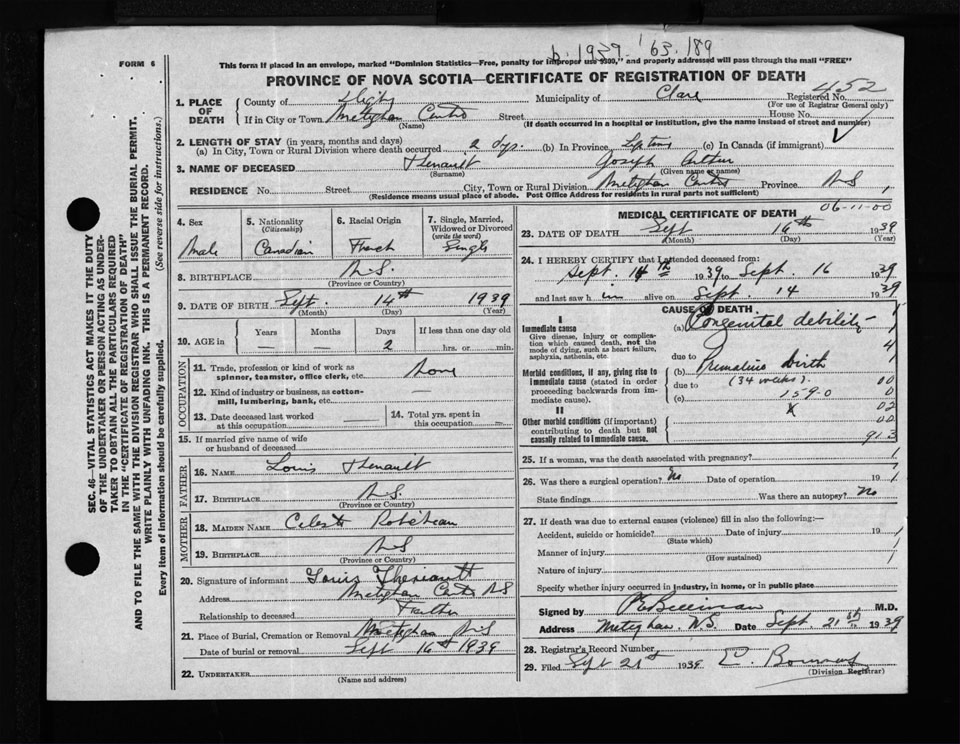 b. 1939-'63.189
FORM 6
This form if placed in an envelope, marked "Dominion Statistics—Free, penalty for improper use $300," and properly addressed will pass through the mail "FREE"
PROVINCE OF NOVA SCOTIA—CERTIFICATE OF REGISTRATION OF DEATH
452
1. PLACE OF DEATH County of Digby Municipality of Clare Registered No.
(For use of Registrar General only)
If in City or Town Meteghan Centre Street House No.
(Name) (If death occurred in a hospital or institution, give the name instead of street and number)
2. LENGTH OF STAY (in years, months and days)
(a) In City, Town or Rural Division where death occurred 2 dys. (b) In Province Lifetime (c) In Canada (if immigrant)
3. NAME OF DECEASED Theriault Joseph Arthur
(Surname) (Given name or names)
RESIDENCE No. Street City, Town or Rural Division Meteghan Centre Province N.S
(Residence means usual place of abode. Post Office Address for residents in rural parts not sufficient)
06-11-00
4. Sex
Male
5. Nationality
(Citizenship)
Canadian
6. Racial Origin
French
7. Single, Married, Widowed or Divorced
(write the word)
Single
8. BIRTHPLACE N.S.
(Province or Country)
9. DATE OF BIRTH Sept. 14th 1939
(Month) (Day) (Year)
10. AGE in Years Months Days If less than one day old
— — 2 hrs. or min.
OCCUPATION
11. Trade, profession or kind of work as spinner, teamster, office clerk, etc. None
12. Kind of industry or business, as cotton-mill, lumbering, bank, etc. —
13. Date deceased last worked at this occupation —
14. Total yrs. spent in this occupation —
15. If married give name of wife or husband of deceased
FATHER
16. NAME Louis Theriault
17. BIRTHPLACE N.S.
MOTHER
18. MAIDEN NAME Celeste Robicheau
19. BIRTHPLACE N.S
(Province or Country)
20. Signature of informant Louis Theriault
Address Meteghan Centre N S
Relationship to deceased Father
21. Place of Burial, Cremation or Removal Meteghan N.S
Date of burial or removal Sept 16th 1939
22. UNDERTAKER
(Name and address)
MEDICAL CERTIFICATE OF DEATH
23. DATE OF DEATH Sept 16th 1939
(Month) (Day) (Year)
24. I HEREBY CERTIFY that I attended deceased from:
Sept. 14th 1939 to Sept. 16 1939
and last saw h im alive on Sept. 14 1939
CAUSE OF DEATH
I
Immediate cause (a) Congenital debility
Give disease, injury or complication which caused death, not the mode of dying, such as heart failure, asphyxia, asthenia, etc.
due to
Morbid conditions, if any, giving rise to immediate cause (stated in order proceeding backwards from immediate cause).
(b) Premature birth
due to (34 weeks).
(c) 159-0
II
Other morbid conditions (if important) contributing to death but not causally related to immediate cause.
1
4
00
0
02
00
91.3
25. If a woman, was the death associated with pregnancy?
26. Was there a surgical operation? No Date of operation 19
State findings Was there an autopsy? No
27. If death was due to external causes (violence) fill in also the following:—
Accident, suicide or homicide? Date of injury 19
(State which)
Manner of injury
(How sustained)
Nature of injury
Specify whether injury occurred in industry, in home, or in public place
Signed by M.D.
Address Meteghan. N.S. Date Sept. 21st 1939
28. Registrar's Record Number
29. Filed Sept 21st 1939
(Division Registrar)
SEC. 46—VITAL STATISTICS ACT MAKES IT THE DUTY
OF THE UNDERTAKER OR PERSON ACTING AS UNDERTAKER TO OBTAIN ALL THE PARTICULARS REQUIRED
IN THE "CERTIFICATE OF REGISTRATION OF DEATH"
AND TO FILE THE SAME WITH THE DIVISION REGISTRAR WHO SHALL ISSUE THE BURIAL PERMIT.
WRITE PLAINLY WITH UNFADING INK. THIS IS A PERMANENT RECORD.
Every item of information should be carefully supplied. (See reverse side for instructions.)